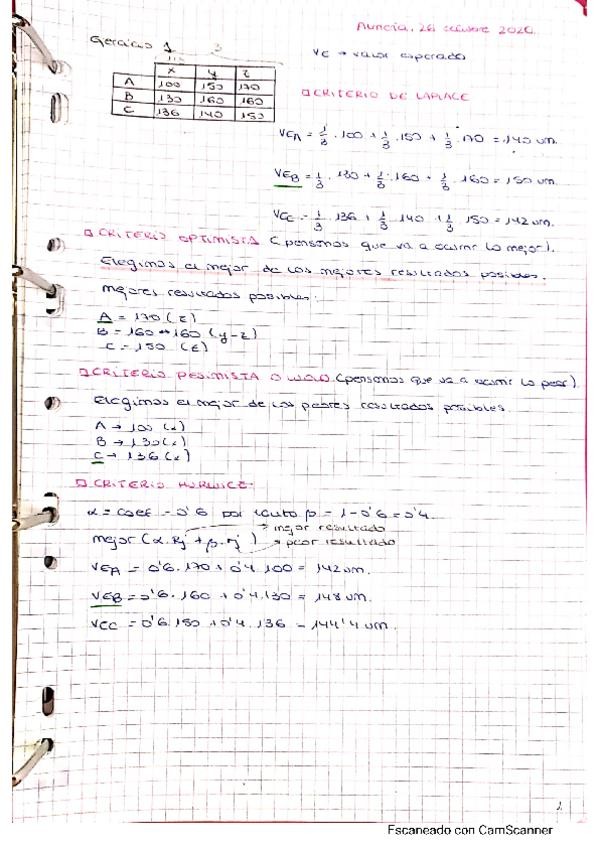 Murcia, 26 octubre 2020.
Ejercicio 1
VE → valor esperado
x y z
A 100 150 170
B 130 160 160
C 136 140 150
CRITERIO DE LAPLACE
VEA = 1/3 · 100 + 1/3 · 150 + 1/3 · 170 = 140 um.
VEB = 1/3 · 130 + 1/3 · 160 + 1/3 · 160 = 150 um.
VEC = 1/3 · 136 + 1/3 · 140 + 1/3 · 150 = 142 um.
CRITERIO OPTIMISTA (pensamos que va a ocurrir lo mejor).
Elegimos el mejor de los mejores resultados posibles.
Mejores resultados posibles:
A = 170 (z)
B = 160 ↔ 160 (y-z)
C = 150 (z)
CRITERIO PESIMISTA O WALD (pensamos que va a ocurrir lo peor)
Elegimos el mejor de los peores resultados posibles
A → 100 (x)
B → 130 (x)
C → 136 (x)
CRITERIO HURWICZ:
α = coef = 0'6 por tanto β = 1 - 0'6 = 0'4.
→ mejor resultado
mejor (α · Rj + β · rj) → peor resultado
VEA = 0'6 · 170 + 0'4 · 100 = 142 um.
VEB = 0'6 · 160 + 0'4 · 130 = 148 um.
VEC = 0'6 · 150 + 0'4 · 136 = 144'4 um.
1
Escaneado con CamScanner